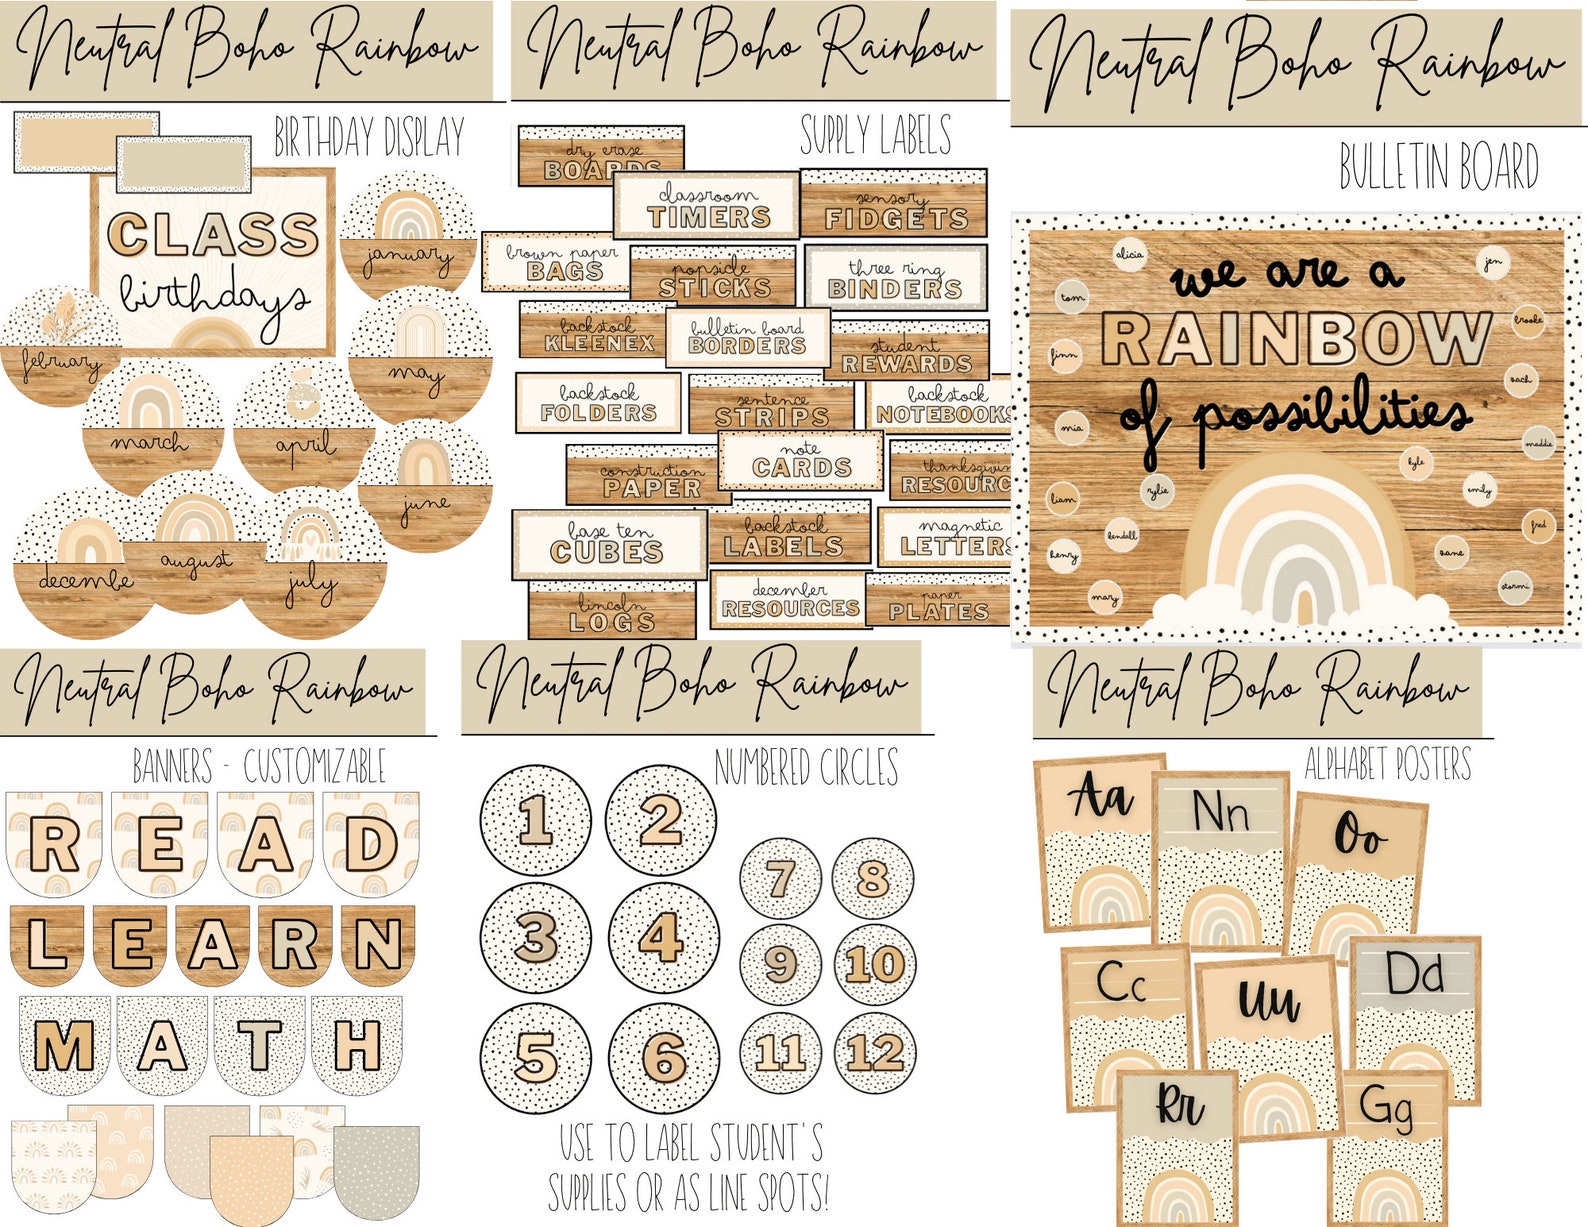 Neutral Boho Rainbow
BIRTHDAY DISPLAY
CLASS
birthdays
january
february
may
march
april
june
december
august
july
Neutral Boho Rainbow
SUPPLY LABELS
dry erase
BOARDS
classroom
TIMERS
sensory
FIDGETS
brown paper
BAGS
popsicle
STICKS
three ring
BINDERS
backstock
KLEENEX
bulletin board
BORDERS
student
REWARDS
backstock
FOLDERS
sentence
STRIPS
backstock
NOTEBOOKS
construction
PAPER
note
CARDS
thanksgivin
RESOURC
base ten
CUBES
backstock
LABELS
magnetic
LETTERS
lincoln
LOGS
december
RESOURCES
paper
PLATES
Neutral Boho Rainbow
BULLETIN BOARD
we are a
RAINBOW
of possibilities
alicia
jen
tom
brooke
finn
zach
mia
maddie
kyle
liam
rylie
emily
kendall
fred
henry
zane
mary
stormi
Neutral Boho Rainbow
BANNERS - CUSTOMIZABLE
READ
LEARN
MATH
Neutral Boho Rainbow
NUMBERED CIRCLES
1 2
3 4
5 6
7 8
9 10
11 12
USE TO LABEL STUDENT'S
SUPPLIES OR AS LINE SPOTS!
Neutral Boho Rainbow
ALPHABET POSTERS
Aa Nn Oo
Cc Uu Dd
Rr Gg